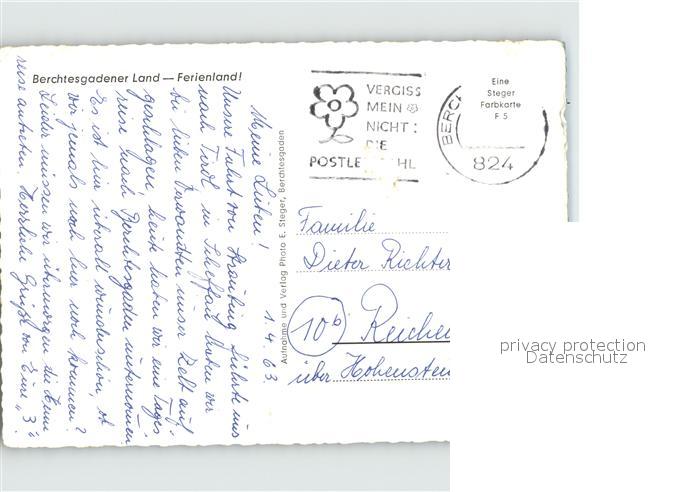 Berchtesgadener Land — Ferienland!
1.4.63.
Meine Lieben!
Unsere Fahrt von Straubing führte uns
nach Tirol in Scheffau haben wir
bei lieben Verwandten unser Zelt auf
geschlagen, heute haben wir eine Tages
reise nach Berchtesgaden unternommen.
Es ist hier überall wunderschön, ob
wir jemals noch hier noch kommen?
Leider müssen wir übermorgen die Heim
reise antreten. Herzliche Grüße von Eure "3"
Aufnahme und Verlag Photo E. Steger, Berchtesgaden
VERGISS
MEIN
NICHT:
DIE
BERC
824
Eine
Steger
Farbkarte
F 5
Familie
Dieter Richter
10b Reichen
über Hohenstein
privacy protection
Datenschutz